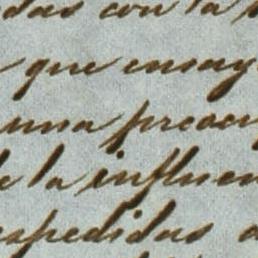 das con la
que ensay
una preocu
de la influen
espedidas a